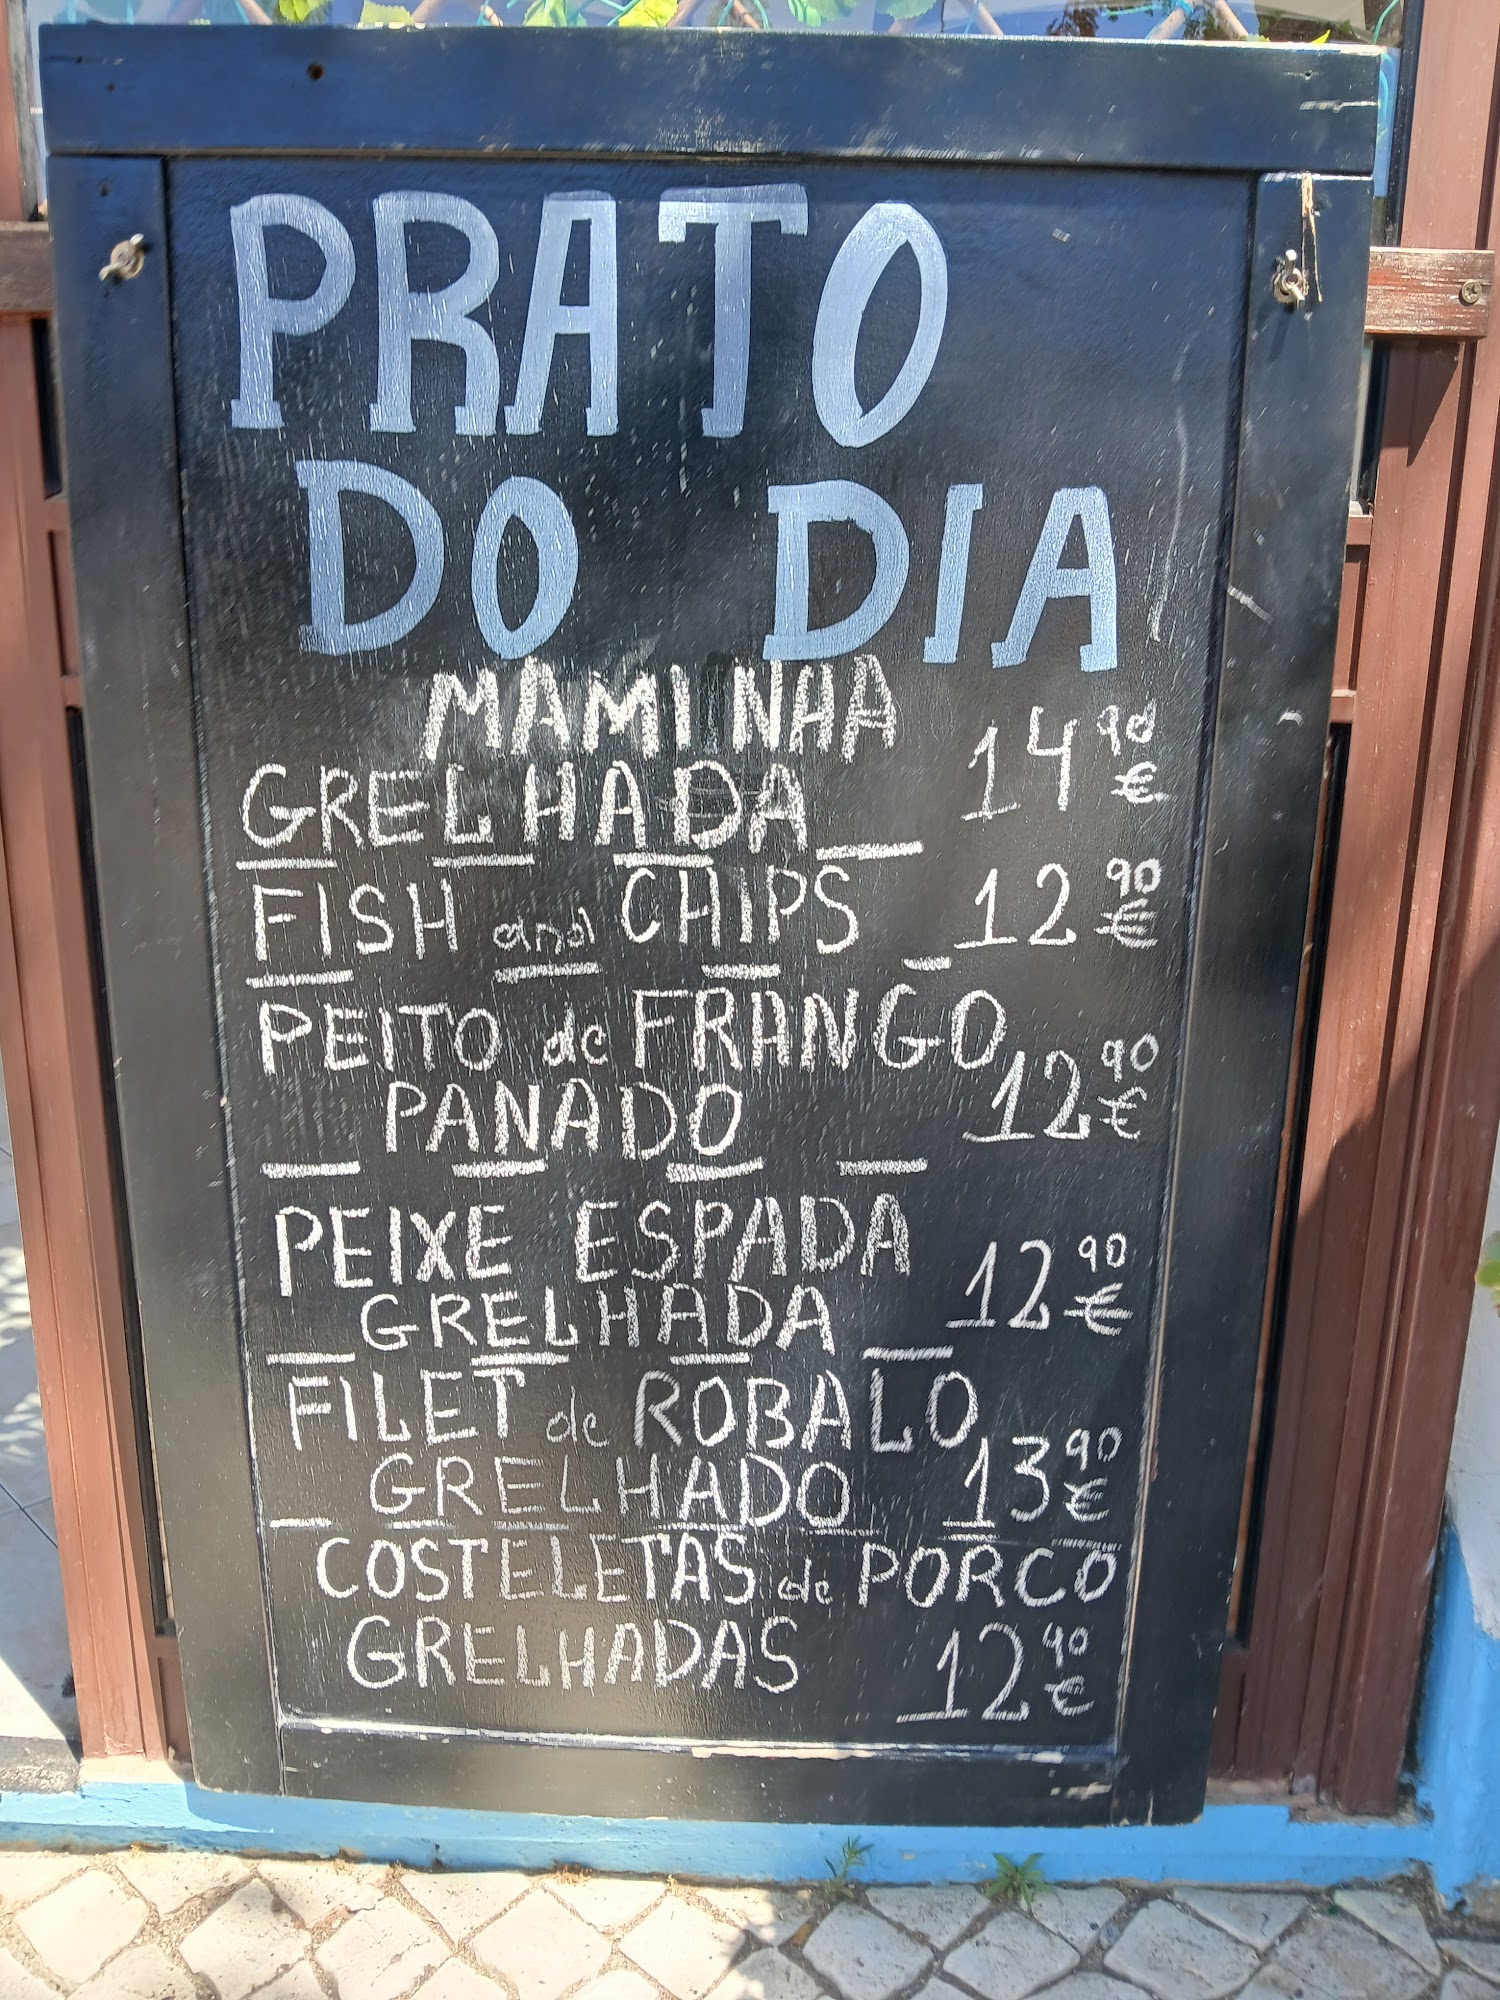 PRATO
DO DIA
MAMINHA
GRELHADA 14 90 €
FISH and CHIPS 12 90 €
PEITO de FRANGO
PANADO 12 90 €
PEIXE ESPADA
GRELHADA 12 90 €
FILET de ROBALO
GRELHADO 13 90 €
COSTELETAS de PORCO
GRELHADAS 12 90 €